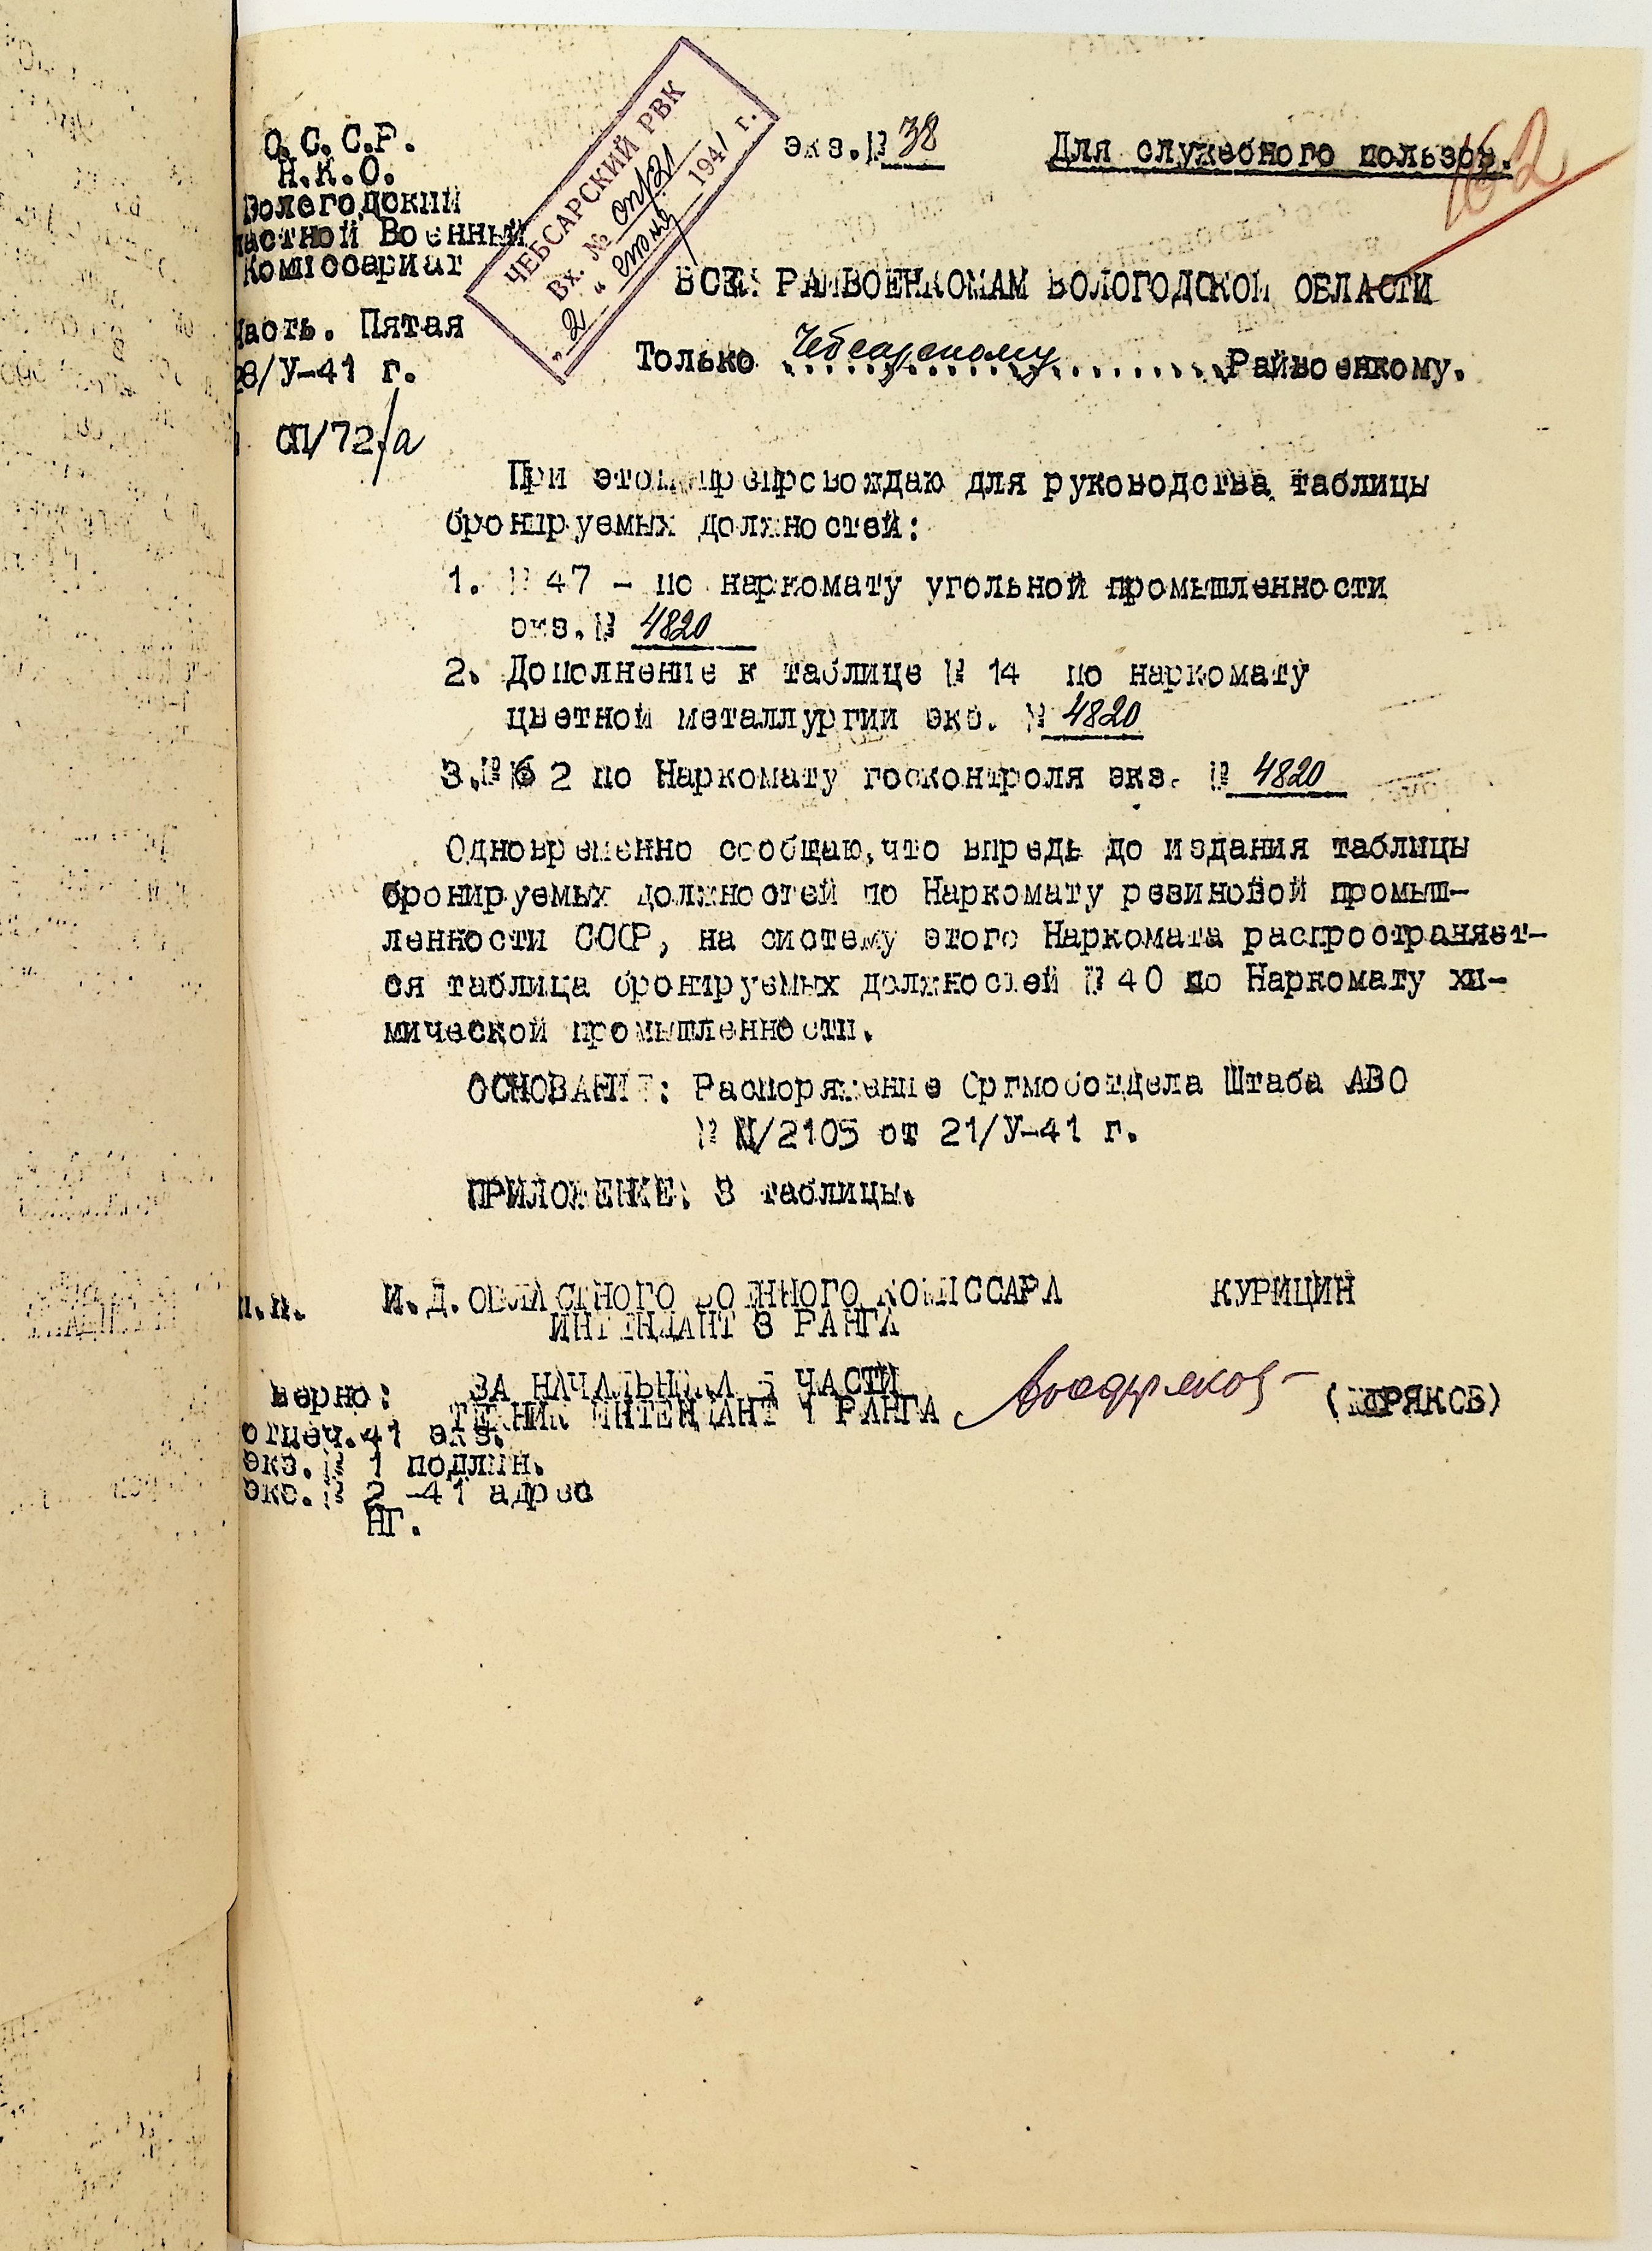 С.С.С.Р.
Н.К.О.
Вологодский
ластной Военный
Комиссариат
Часть. Пятая
28/У-41 г.
СП/72/а
ЧЕБСАРСКИЙ РВК
Вх. № сп/21
"2" 1941 г.
экз.№ 38
Для служебного пользов.
162
ВСЕМ РАЙВОЕНКОМАМ ВОЛОГОДСКОЙ ОБЛАСТИ
Только Чебсарскому Райвоенкому.
При этом препровождаю для руководства таблицы
бронируемых должностей:
1. № 47 - по наркомату угольной промышленности
экз.№ 4820
2. Дополнение к таблице № 14 по наркомату
цветной металлургии экз. № 4820
3.№ 62 по Наркомату госконтроля экз. № 4820
Одновременно сообщаю,что впредь до издания таблицы
бронируемых должностей по Наркомату резиновой промыш-
ленности СССР, на систему этого Наркомата распространяет-
ся таблица бронируемых должностей № 40 по Наркомату хи-
мической промышленности.
ОСНОВАНИЕ: Распоряжение Оргмоботдела Штаба АВО
№ М/2105 от 21/У-41 г.
ПРИЛОЖЕНИЕ: 3 таблицы.
п.п. И.Д.ОБЛАСТНОГО ВОЕННОГО КОМИССАРА КУРИЦИН
ИНТЕНДАНТ 3 РАНГА
Верно: ЗА НАЧАЛЬНИКА 5 ЧАСТИ
ТЕХНИК ИНТЕНДАНТ 1 РАНГА
отпеч.41 экз.
экз.№ 1 подлин.
экз.№ 2 -41 адрес
НГ.